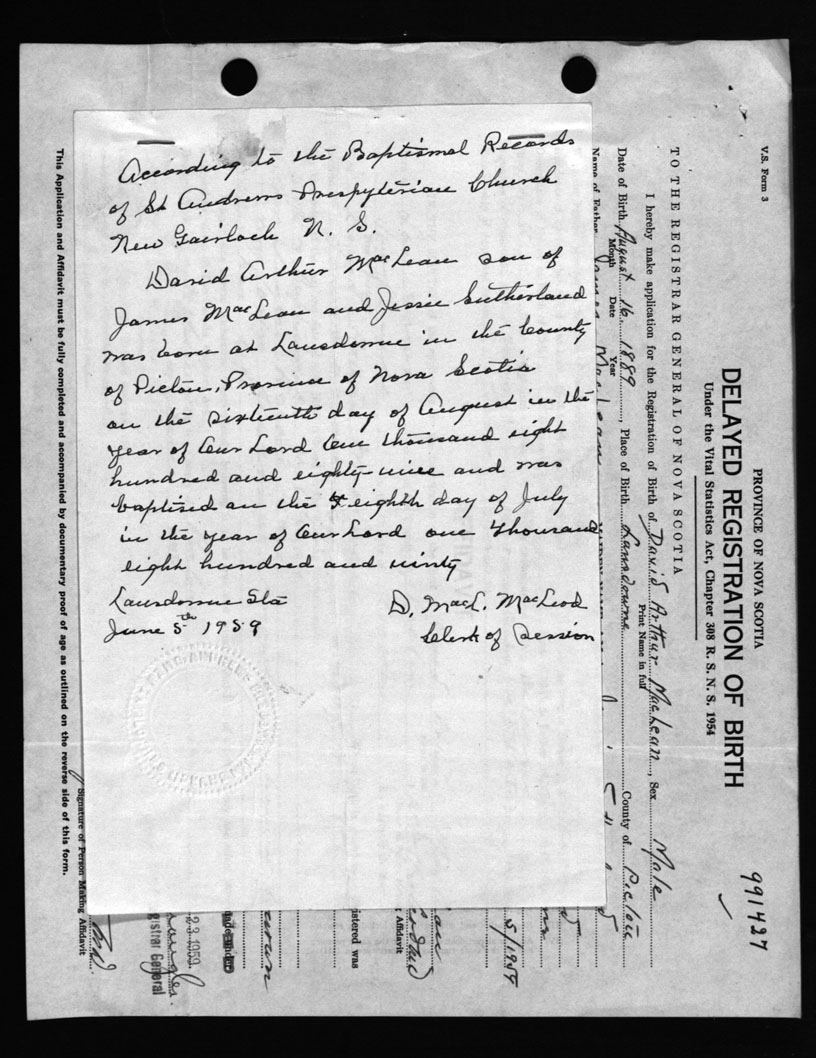 According to the Baptismal Records
of St Andrews Presbyterian Church
New Gairloch N. S.
David Arthur MacLean son of
James MacLean and Jessie Sutherland
was born at Lansdowne in the County
of Pictou, Province of Nova Scotia
on the sixteenth day of August in the
year of Our Lord One thousand eight
hundred and eighty-nine and was
baptised on the eighth day of July
in the year of Our Lord one thousand
eight hundred and ninty
Lansdowne Sta
June 5th 1959
D. MacL. MacLeod
Clerk of Session
V.S. Form 3
PROVINCE OF NOVA SCOTIA
DELAYED REGISTRATION OF BIRTH
Under the Vital Statistics Act, Chapter 308 R. S. N. S. 1954
991427
TO THE REGISTRAR GENERAL OF NOVA SCOTIA
I hereby make application for the Registration of Birth of David Arthur MacLean, Sex Male
Print Name in full
Date of Birth August 16, 1889, Place of Birth Lansdowne County of Pictou
Month Date Year
Name of Father James MacLean
5/1959
istered was
t Affidavit
23 1959
gistrar General
Signature of Person Making Affidavit
This Application and Affidavit must be fully completed and accompanied by documentary proof of age as outlined on the reverse side of this form.